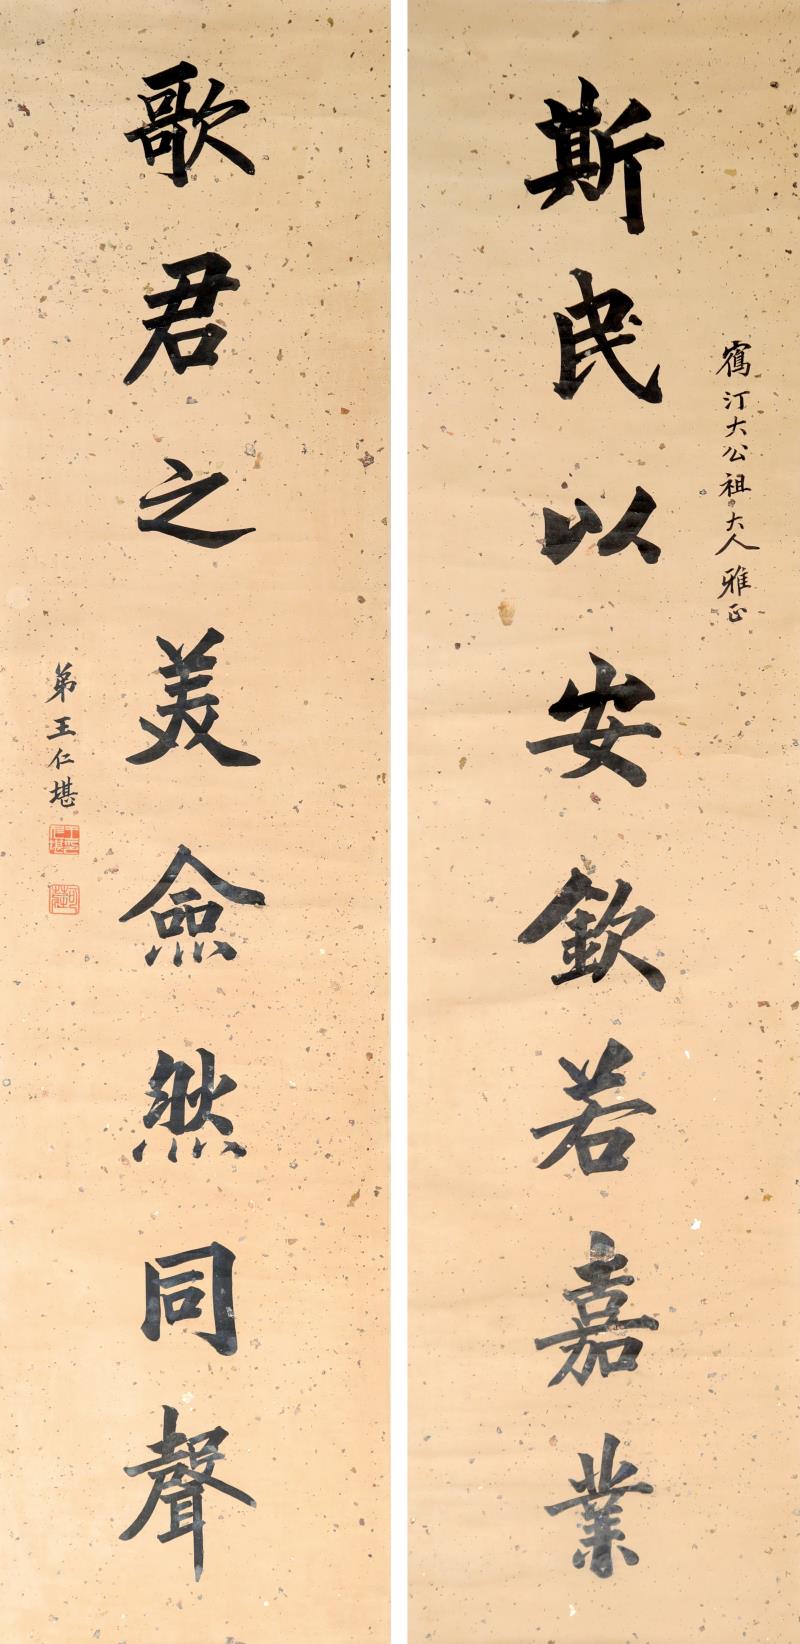 斯民以安欽若嘉業
鶴汀大公祖大人雅正
歌君之美僉然同聲
弟王仁堪
可莊